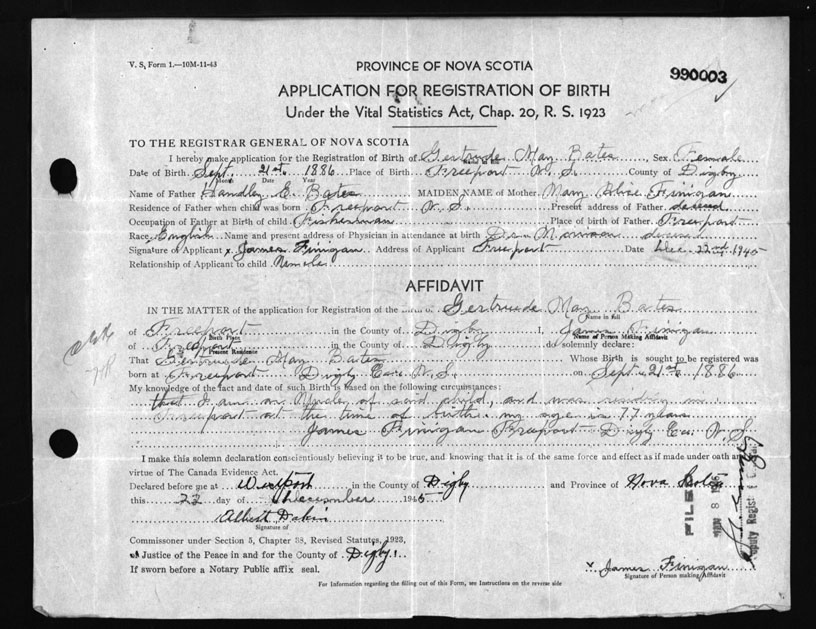 V. S. Form 1.—10M-11-43
PROVINCE OF NOVA SCOTIA
990003
APPLICATION FOR REGISTRATION OF BIRTH
Under the Vital Statistics Act, Chap. 20, R. S. 1923
TO THE REGISTRAR GENERAL OF NOVA SCOTIA
I hereby make application for the Registration of Birth of Gertrude May Bates Sex Female
Date of Birth Sept. 21st 1886 Place of Birth Freeport N.S. County of Digby
Month Date Year
Name of Father Handley E. Bates MAIDEN NAME of Mother Mary Finigan
Residence of Father when child was born Freeport N.S. Present address of Father
Occupation of Father at Birth of child Fisherman Place of birth of Father Freeport
Race English Name and present address of Physician in attendance at birth Dr. Morrison
Signature of Applicant x James Finigan Address of Applicant Freeport Date Dec 22nd 1945
Relationship of Applicant to child
AFFIDAVIT
IN THE MATTER of the application for Registration of the birth of Gertrude May Bates
Name in full
of Freeport in the County of Digby I, James Finigan
Birth Place Name of Person Making Affidavit
of Freeport in the County of Digby do solemnly declare:
Present Residence
That Gertrude May Bates Whose Birth is sought to be registered was
born at Freeport Digby Co. N.S. on Sept 21st 1886
My knowledge of the fact and date of such Birth is based on the following circumstances:
that I am an Uncle of said child, and was residing in
Freeport at the time of birth. my age is 77 years
James Finigan Freeport Digby Co. N.S.
I make this solemn declaration conscientiously believing it to be true, and knowing that it is of the same force and effect as if made under oath and
virtue of The Canada Evidence Act.
Declared before me at Westport in the County of Digby and Province of Nova Scotia
this 22 day of December 1945
Albert Dakin
Signature of
Commissioner under Section 5, Chapter 38, Revised Statutes, 1923,
Justice of the Peace in and for the County of Digby
If sworn before a Notary Public affix seal.
x James Finigan
Signature of Person making Affidavit
For Information regarding the filling out of this Form, see Instructions on the reverse side
FILED
Deputy Registrar